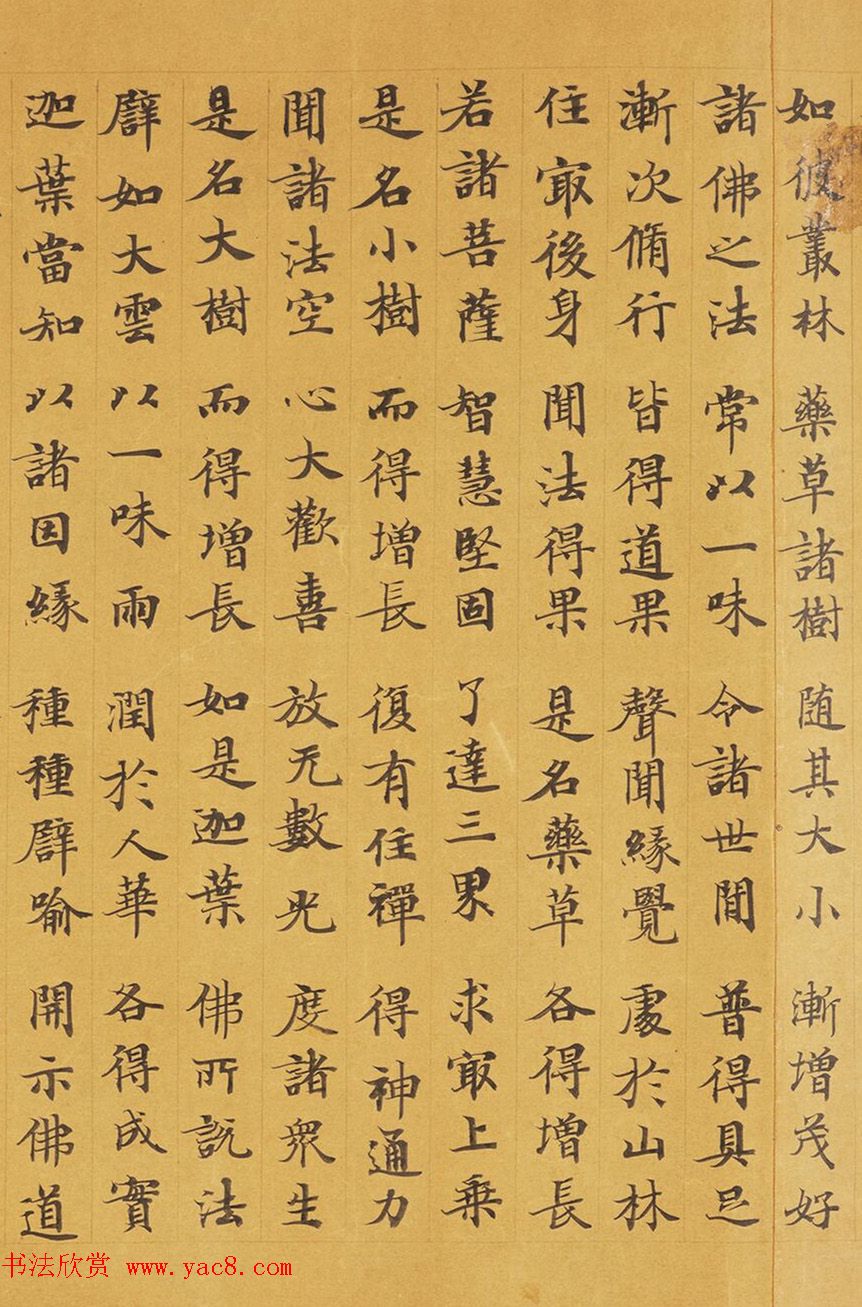 如彼叢林 藥草諸樹 随其大小 漸增茂好
諸佛之法 常以一味 令諸世間 普得具足
漸次脩行 皆得道果 聲聞緣覺 處於山林
住㝡後身 聞法得果 是名藥草 各得增長
若諸菩薩 智慧堅固 了達三界 求㝡上乗
是名小樹 而得增長 復有住禪 得神通力
聞諸法空 心大歡喜 放无數光 度諸衆生
是名大樹 而得增長 如是迦葉 佛所說法
譬如大雲 以一味雨 潤於人華 各得成實
迦葉當知 以諸因緣 種種譬喻 開示佛道
书法欣赏 www.yac8.com